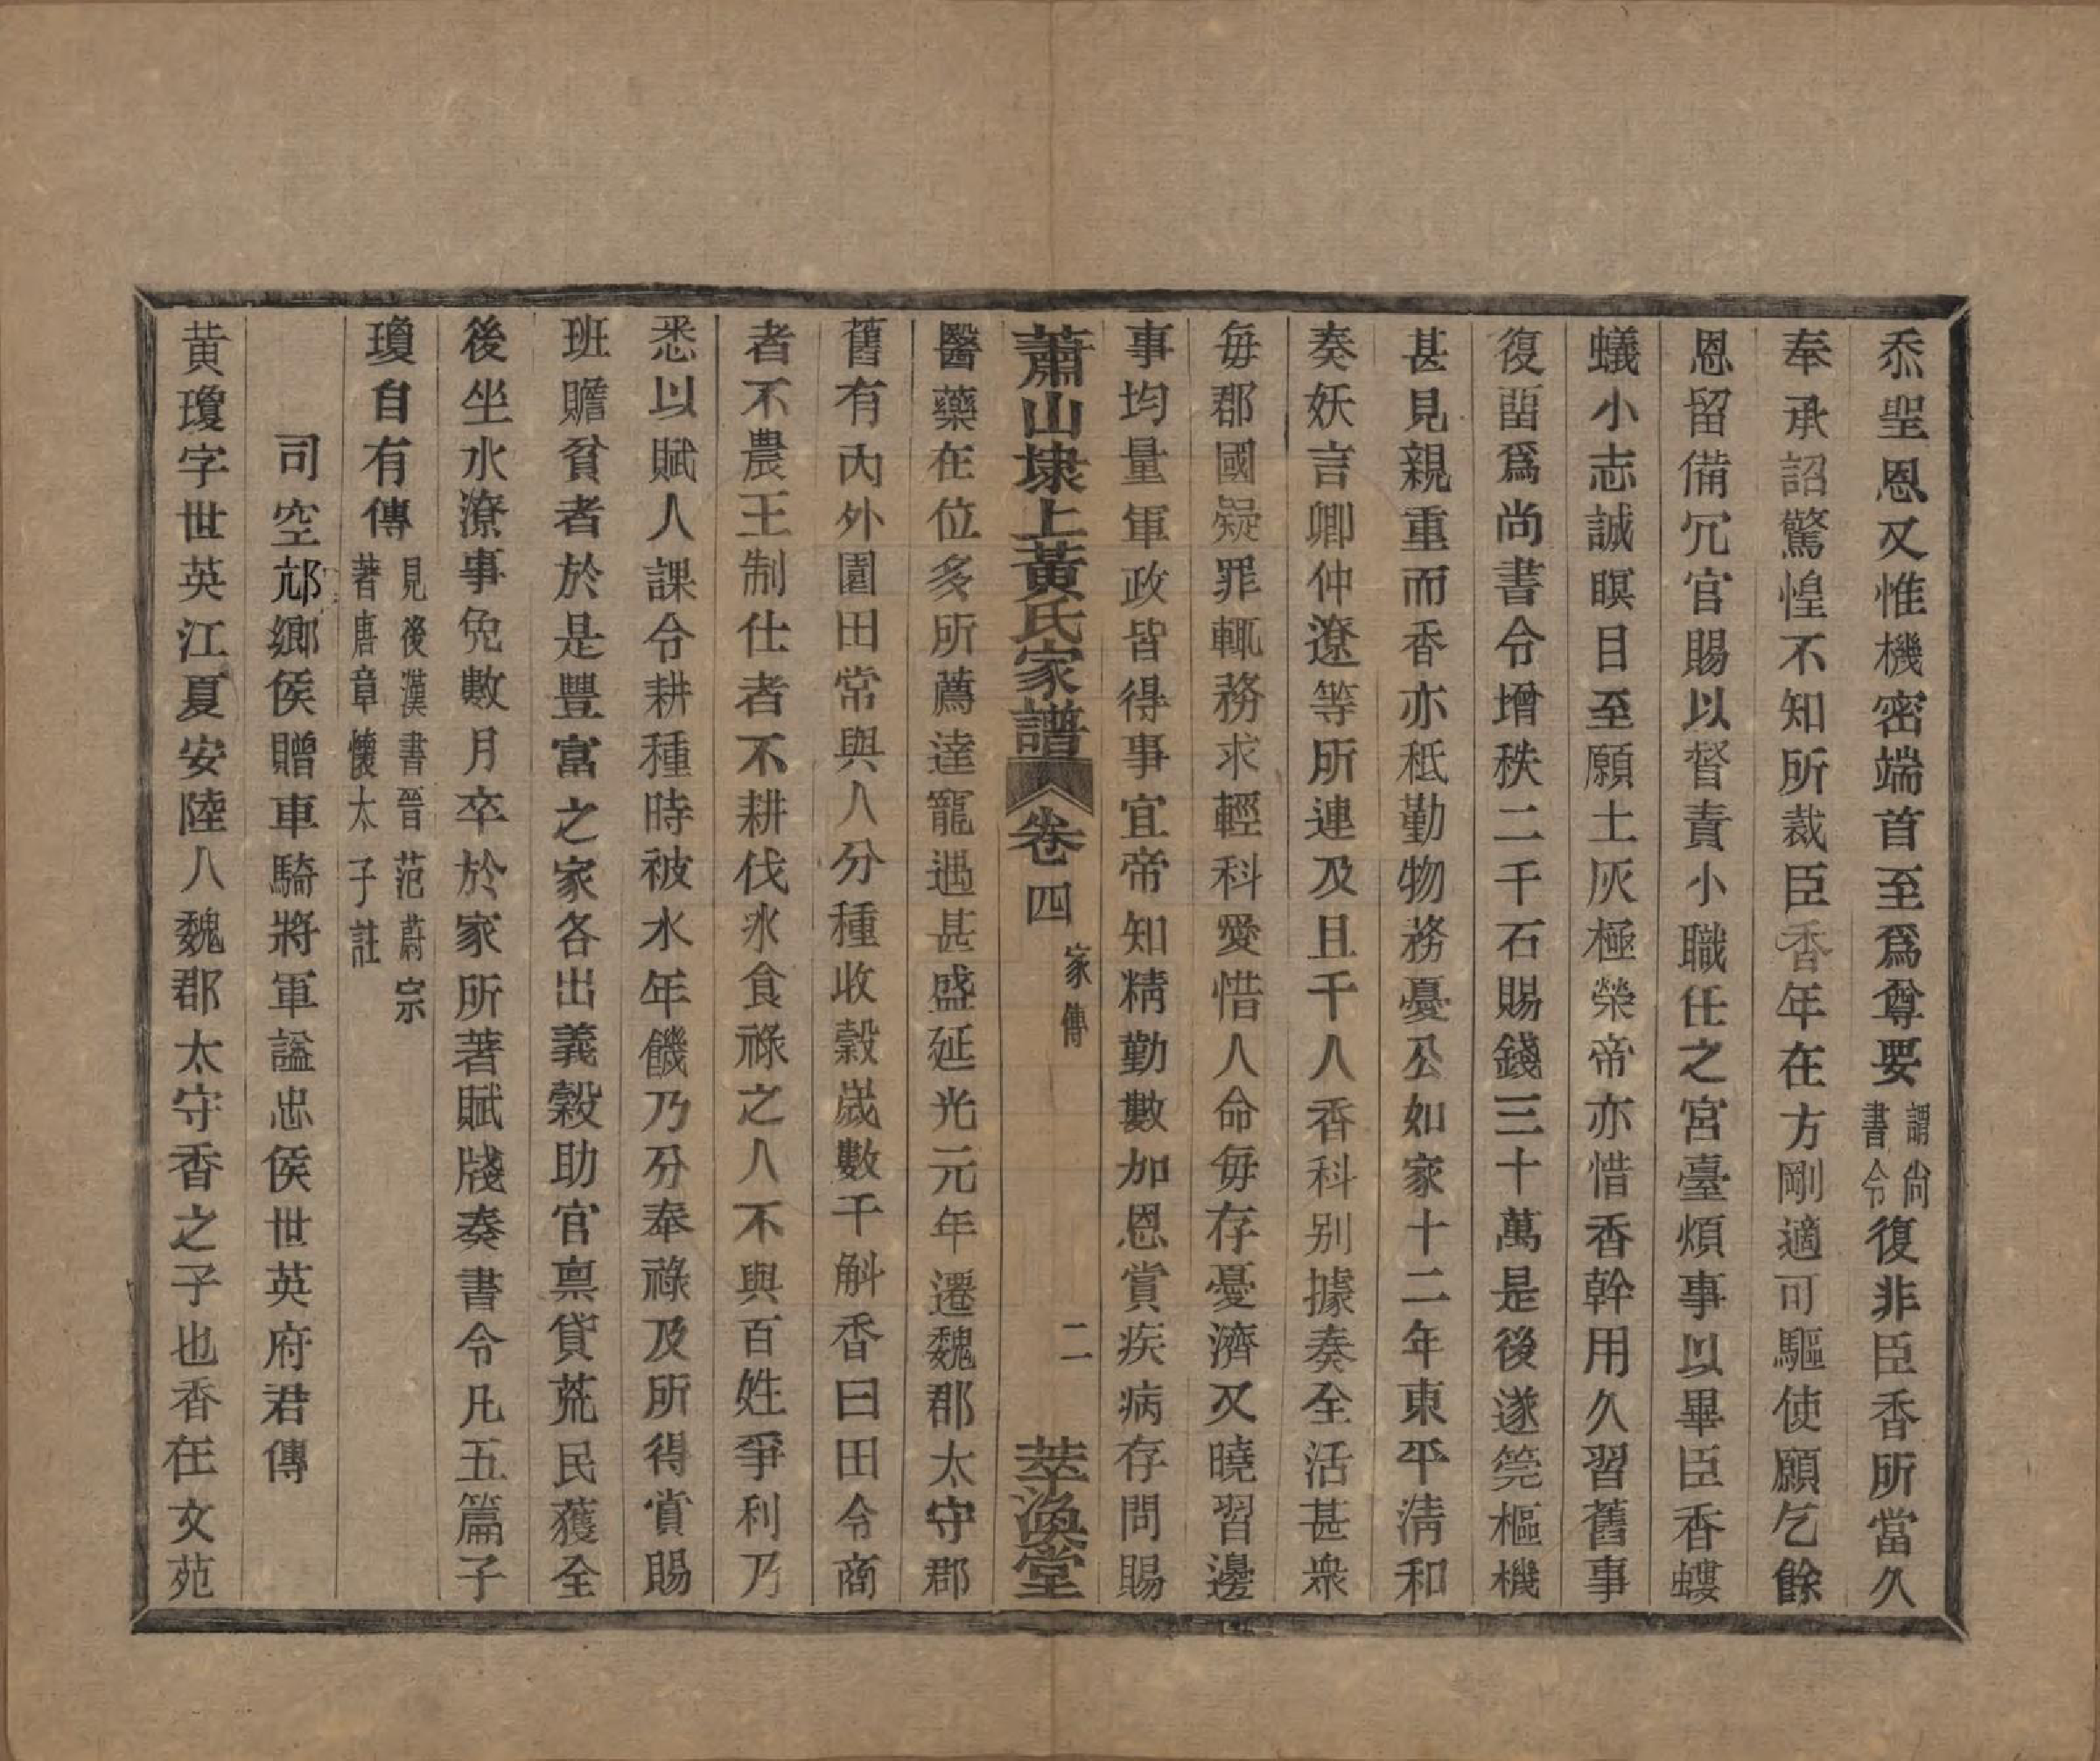 忝聖恩又惟機密端首至爲尊要謂尚書令復非臣香所當久
奉承詔驚惶不知所裁臣香年在方剛適可驅使願乞餘
恩留備冗官賜以督責小職任之宮臺煩事以畢臣香螻
蟻小志誠瞑目至願土灰極榮帝亦惜香幹用久習舊事
復畱爲尚書令增秩二千石賜錢三十萬是後遂筦樞機
甚見親重而香亦秪勤物務憂公如家十二年東平淸和
奏妖言卿仲遼等所連及且千人香科别據奏全活甚衆
每郡國疑罪輒務求輕科愛惜人命每存憂濟又曉習邊
事均量軍政皆得事宜帝知精勤數加恩賞疾病存問賜
蕭山埭上黃氏家譜 卷四 家傳 二 萃渙堂
醫藥在位多所薦達寵遇甚盛延光元年遷魏郡太守郡
舊有內外園田常與人分種收穀嵗數千斛香曰田令商
者不農王制仕者不耕伐氷食祿之人不與百姓爭利乃
悉以賦人課令耕種時被水年饑乃分奉祿及所得賞賜
班贍貧者於是豐富之家各出義穀助官禀貸荒民獲全
後坐水潦事免數月卒於家所著賦牋奏書令凡五篇子
瓊自有傳見後漢書晉范蔚宗著唐章懷太子註
司空邟鄉侯贈車騎將軍諡忠侯世英府君傳
黄瓊字世英江夏安陸人魏郡太守香之子也香在文苑